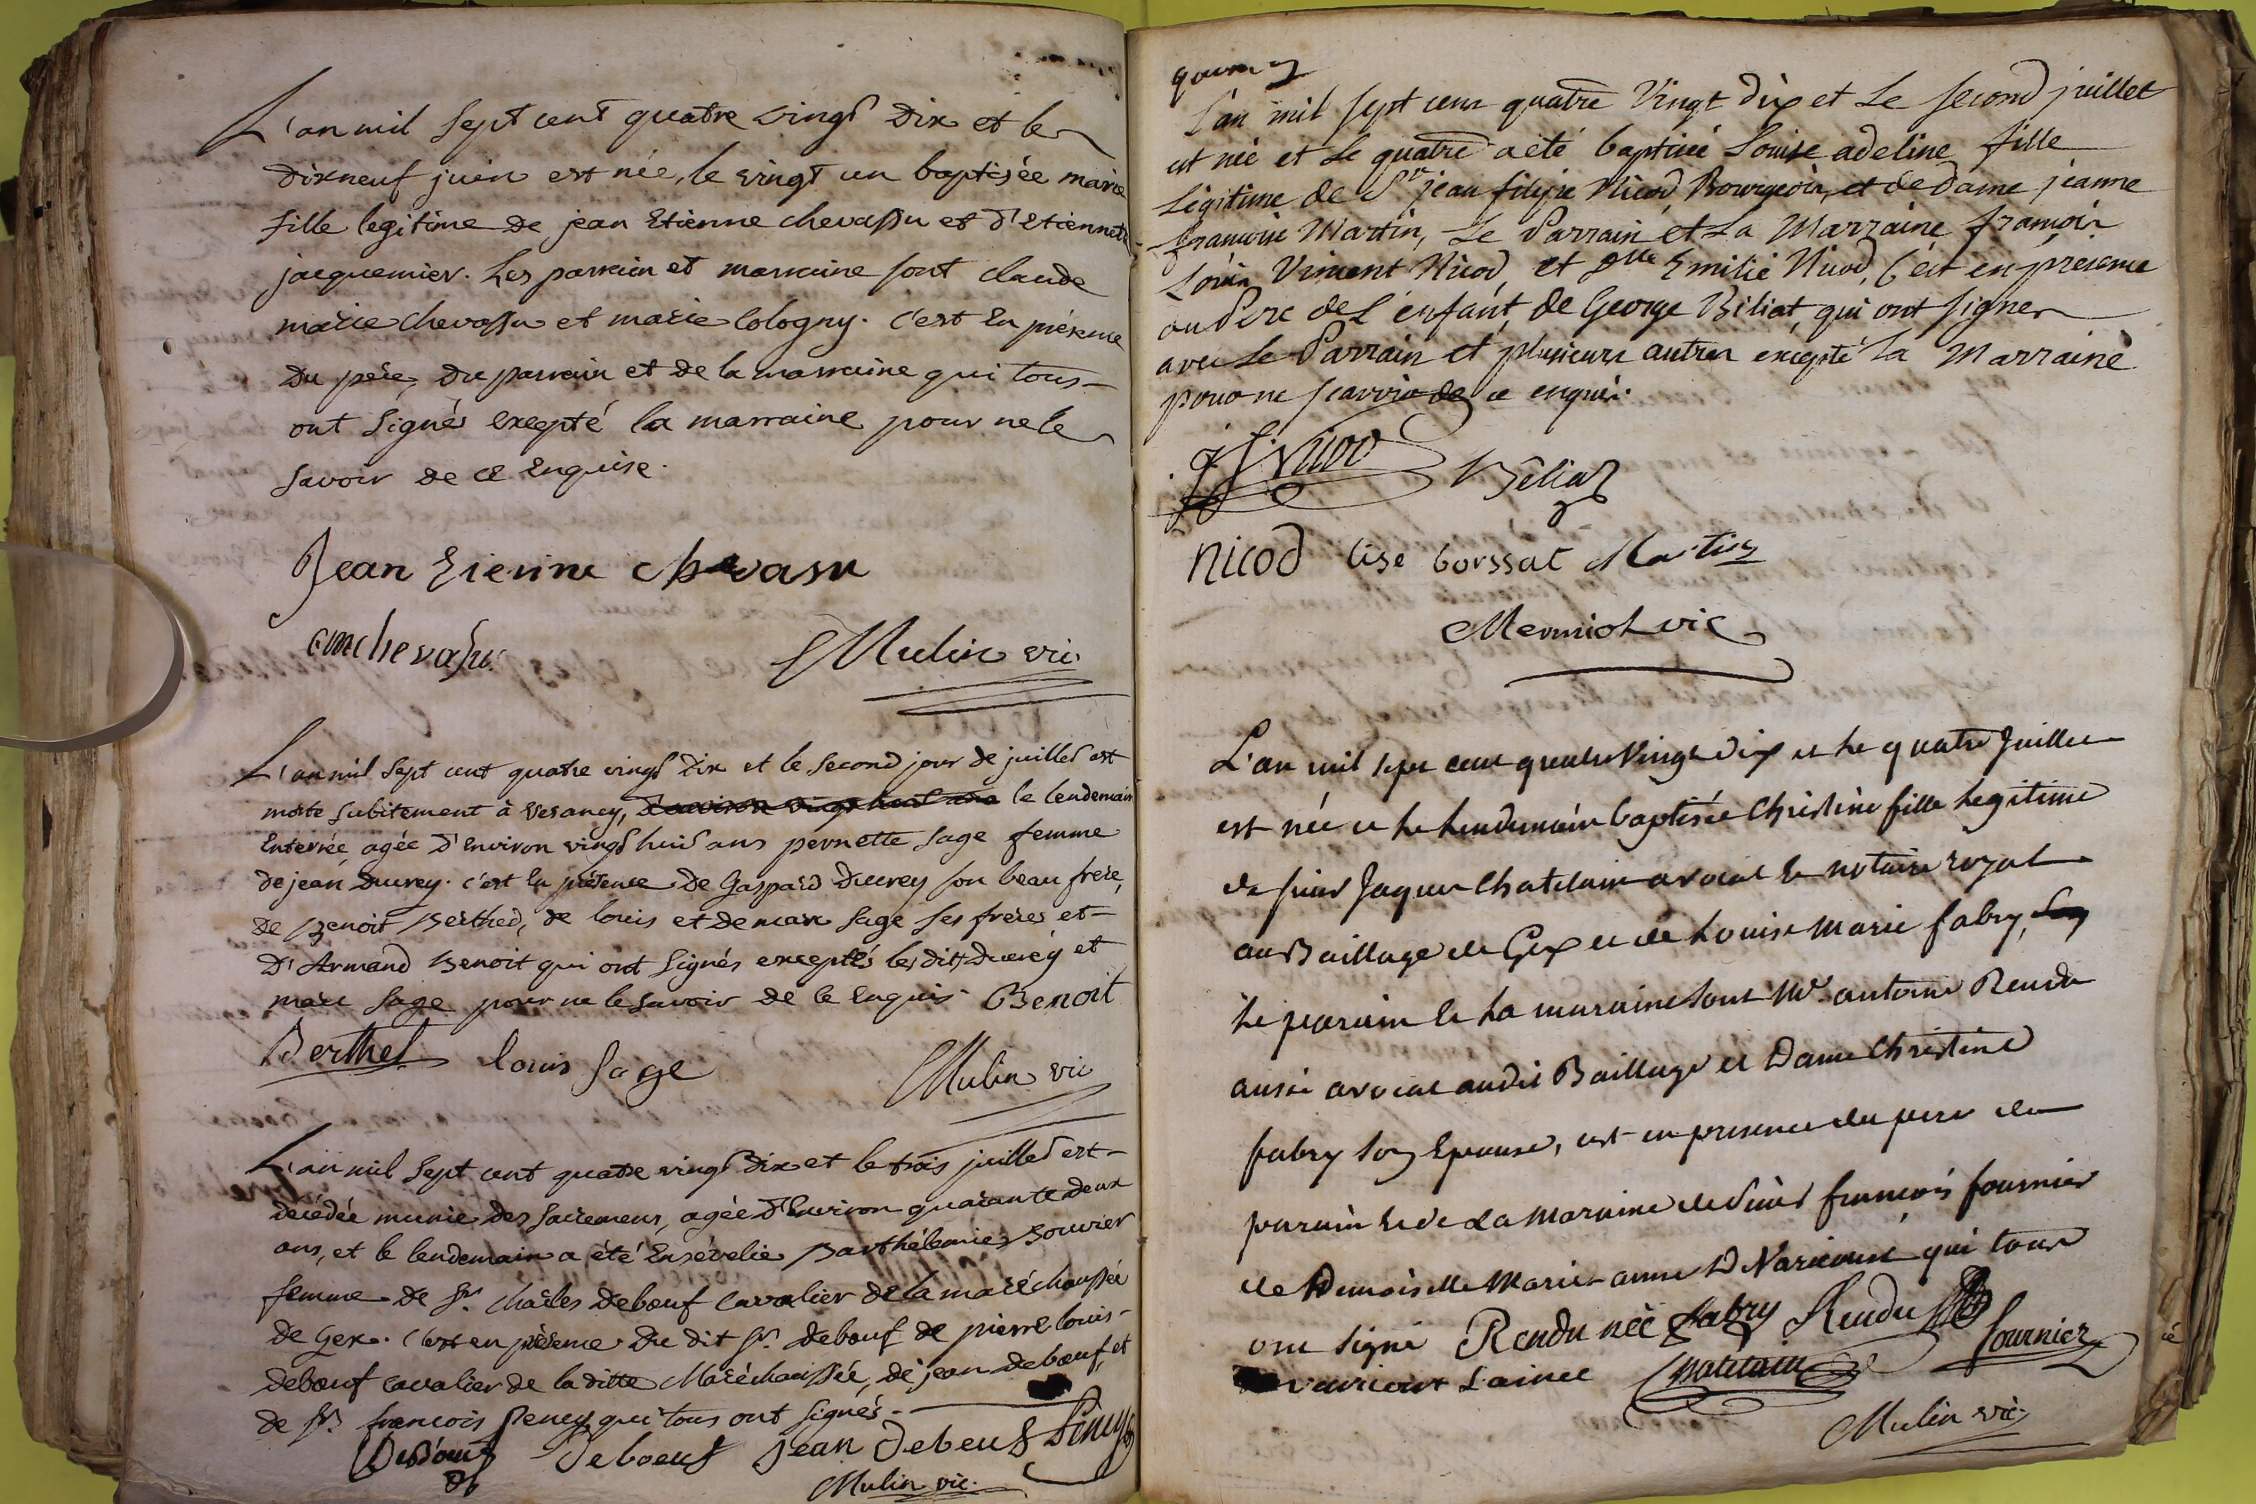 L'an mil sept cent quatre vingt dix et le
dixneuf juin est née, le vingt un baptisée marie
fille legitime de jean Etienne chevassu et d'Etiennette
jacquemier. Les parrain et marraine sont claude
marie chevassu et marie Cologny. c'est en présence
du père, du parrain et de la marraine qui tous
ont signés excepté la marraine pour ne le
savoir de ce Enquise.
Jean Etienne chevassu
cm chevassu
Mulin vic.
L'an mil sept cent quatre vingt dix et le second jour de juillet est
morte subitement à Vesancy, d'environ vingt huit ans le lendemain
Enterrée, agée d'Environ vingt huit ans pernette Sage femme
de jean Ducrey. c'est en présence de Gaspard Ducrey son beau frère,
de Benoit Berthed, de louis et de marc Sage ses frères et
d'Armand Benoit qui ont signés exceptés les dits Ducrey et
marc Sage pour ne le savoir de ce Enquis. Benoit
Berthet louis Sage
Mulin vic
L'an mil sept cent quatre vingt dix et le trois juillet est
décédée munie des sacremens, agée d'Environ quarante deux
ans, et le lendemain a été Ensévelie Barthélemie Bouvier
femme de Sr. charles Debœuf cavalier de la maréchaussée
de Gex. c'est en présence du dit Sr. debœuf de pierre louis
debœuf cavalier de la ditte Maréchaussée, de jean debœuf, et
de Sr. francois Pency qui tous ont signés.
Debœuf Deboeuf jean debeuf Pency
Mulin vic.
L'an mil sept cent quatre Vingt dix et Le second juillet
est née et Le quatre a été baptisée Louise adeline fille
Légitime de Sr jean filipe Nicod Bourgeois, et de Dame jeanne
francoise Martin, Le Parrain et La Marraine francois
Louis Vincent Nicod, et Dlle Emilie Nicod, C'est en présence
du Pere de L'enfant, de George Béliat, qui ont signer
avec Le Parrain et plusieurs autres excepté La Marraine
pour ne scavoir de ce enquis.
jf Nicod Béliat
Nicod lise borssat Martin
Mermiot vic
L'an mil sept cent quatre Vingt dix et Le quatre Juillet
est née et Le Lendemain baptisée Christine fille Legitime
de sieur Jaques Chatelain avocat et notaire royal
au Baillage de Gex et de Louise Marie fabry, Son
Le parain et La maraine sont Mr. antoine Rendu
aussi avocat audit Baillage et Dame Christine
fabry son Epouse, c'est en presence du pere du
parain et de La Maraine de sieur françois fournier
de Demoiselle Marie anne D Varicourt qui tous
ont signé Rendu née fabry Rendu fournier
varicourt L'ainée Chatelain
Mulin vic.